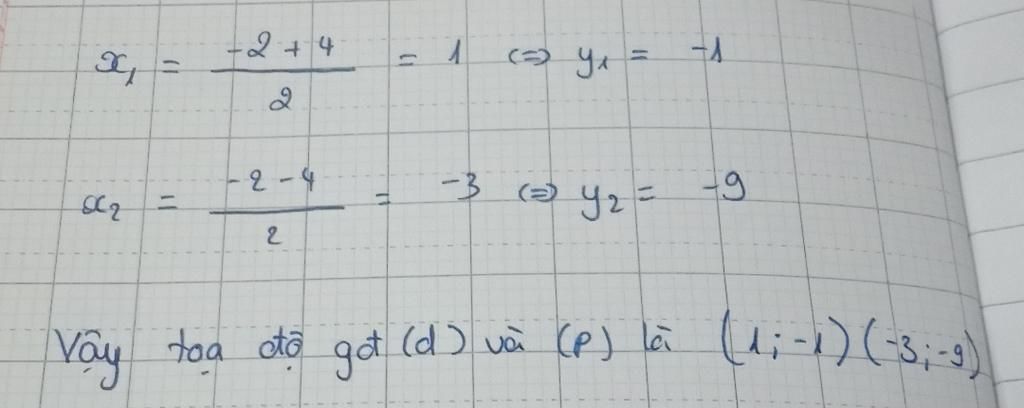 x₁ = (-2 + 4)/2 = 1 <=> y₁ = -1
x₂ = (-2 - 4)/2 = -3 <=> y₂ = -9
Vậy toạ độ gđ (d) và (P) là (1; -1) (-3; -9)